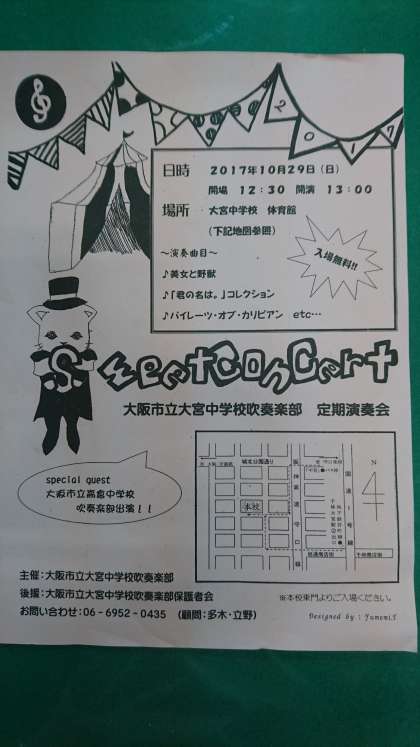 2017
日時 2017年10月29日(日)
開場 12:30 開演 13:00
場所 大宮中学校 体育館
(下記地図参照)
入場無料!!
~演奏曲目~
♪美女と野獣
♪「君の名は。」コレクション
♪パイレーツ・オブ・カリビアン etc…
Sweet Concert
大阪市立大宮中学校吹奏楽部 定期演奏会
special guest
大阪市立高倉中学校
吹奏楽部出演!!
城北公園通り
本校
国道1号線
N
主催:大阪市立大宮中学校吹奏楽部
後援:大阪市立大宮中学校吹奏楽部保護者会
※本校東門よりご入場ください。
お問い合わせ:06-6952-0435 (顧問:多木・立野)
Designed by : YumemiT